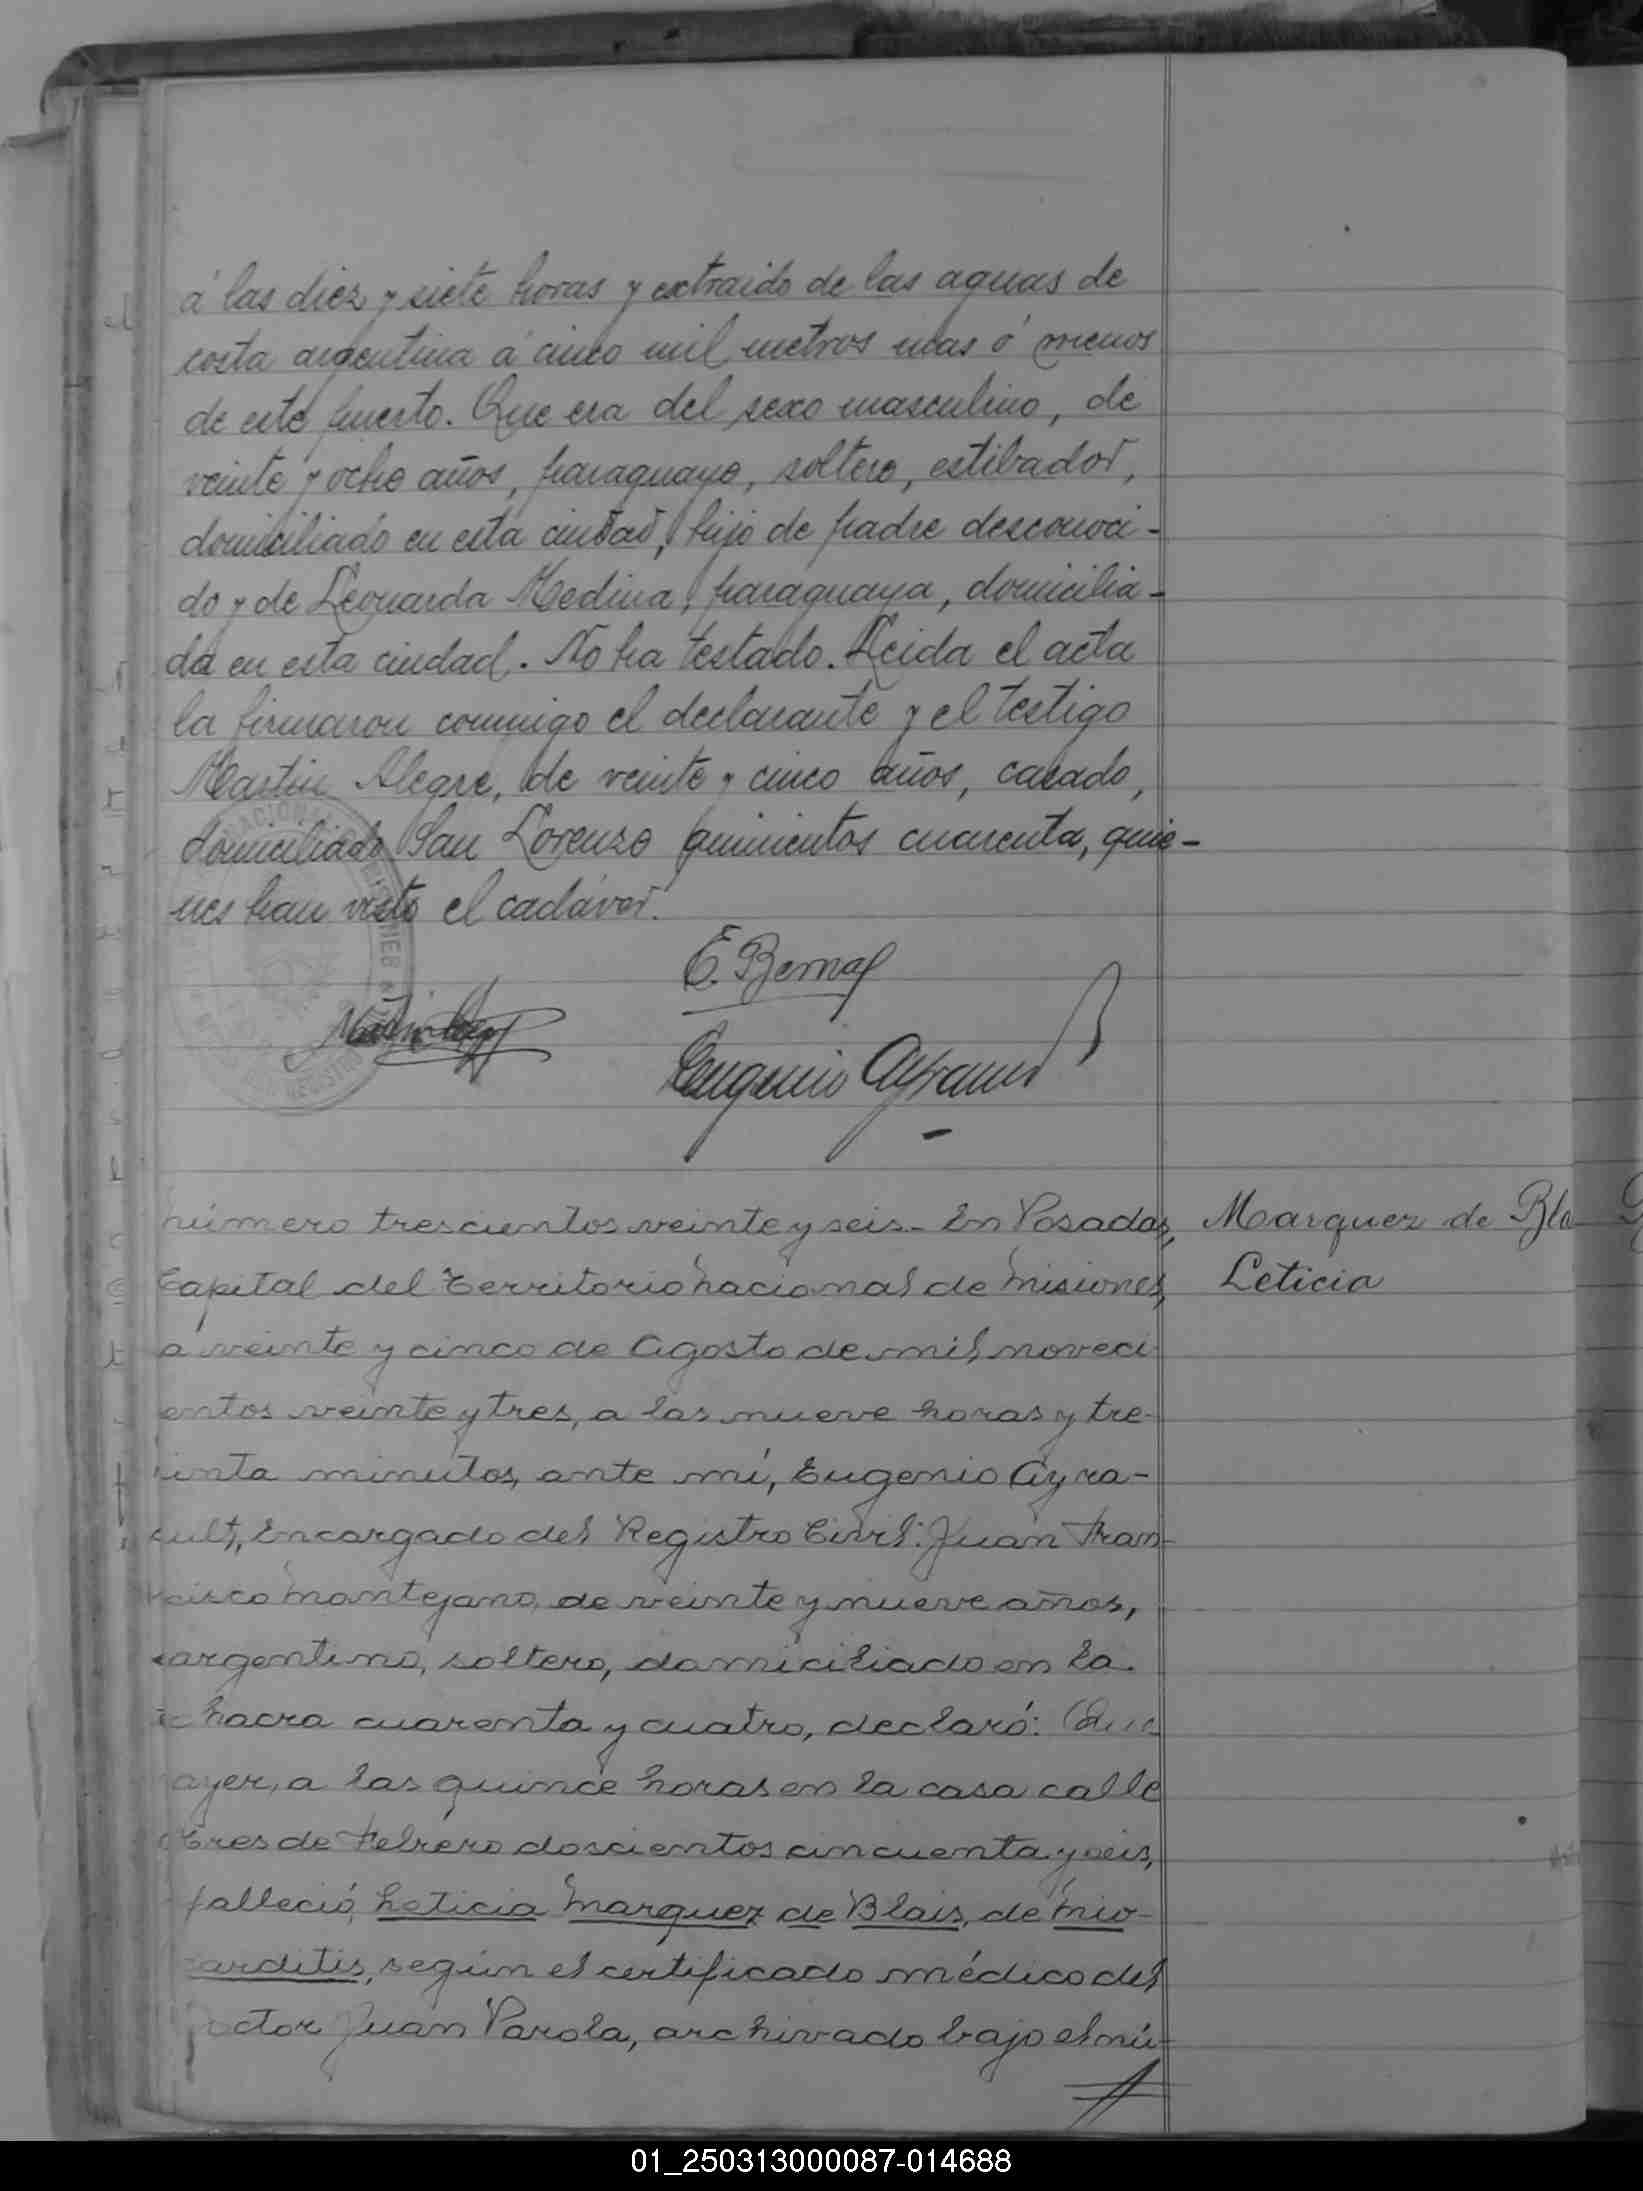 á las diez y siete horas y extraido de las aguas de
costa argentina á cinco mil metros mas ó menos
de este puerto. Que era del sexo masculino, de
veinte y ocho años, paraguayo, soltero, estibador,
domiciliado en esta ciudad, hijo de padre desconoci-
do y de Leonarda Medina, paraguaya, domicilia-
da en esta ciudad. No ha testado. Leida el acta
la firmaron conmigo el declarante y el testigo
Martin Alegre, de veinte y cinco años, casado,
domiciliado San Lorenzo quinientos cuarenta, quie-
nes han visto el cadáver.
E. Bernal
Eugenio
número trescientos veinte y seis.- En Posadas,
Marquez de Bla
Capital del Territorio nacional de Misiones,
Leticia
a veinte y cinco de Agosto de mil noveci
entos veinte y tres, a las nueve horas y tre-
inta minutos, ante mí, Eugenio Ayra-
ult, Encargado del Registro Civil: Juan Fran-
cisco Montejano, de veinte y nueve años,
argentino, soltero, domiciliado en la
chacra cuarenta y cuatro, declaró: Que
ayer, a las quince horas en la casa calle
Tres de Febrero doscientos cincuenta y seis,
falleció, Leticia Marquez de Blais, de mio-
carditis, según el certificado médico del
Doctor Juan Parola, archivado bajo el nú-
01_250313000087-014688